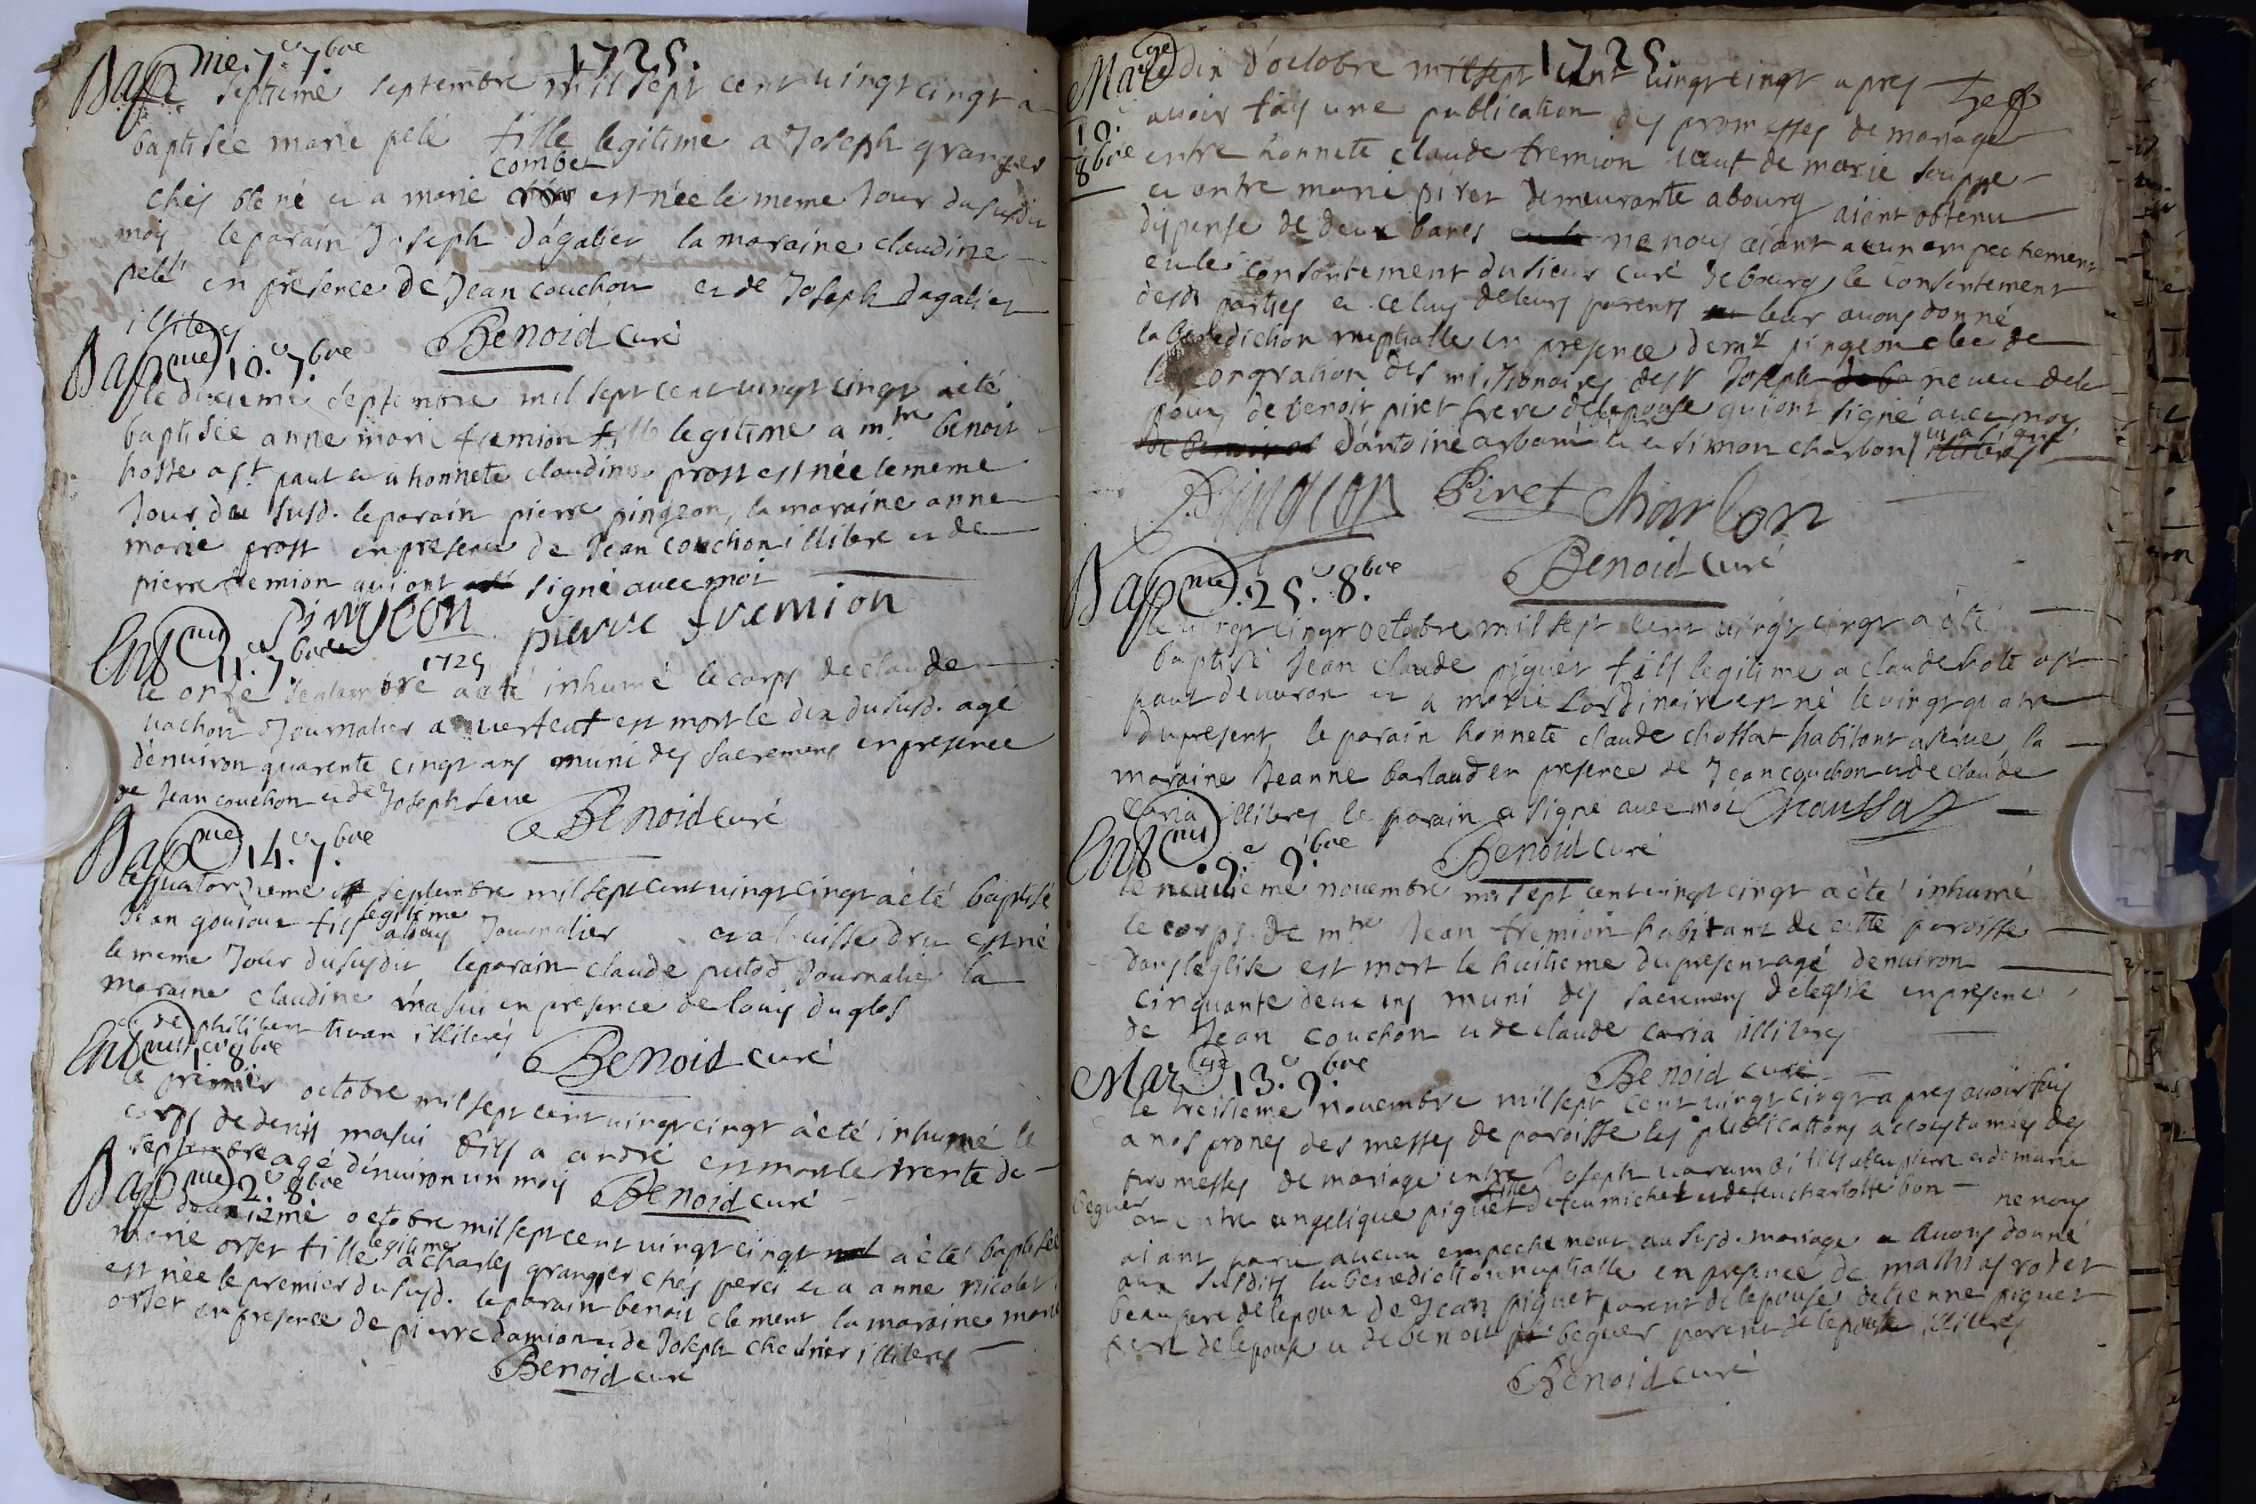 1725.
Bap me. 7e 7bre
septieme septembre mil sept cent vingt cinqt a
baptisée marie pelé fille legitime a Joseph granger
combe
chés et a marie est née le meme Jour du susdit
mois le parain Joseph dagalier la maraine claudine
pelé en presence de Jean couchon et de Joseph dagalier
illiteres
Benoid curé
Bap me 10.e 7.bre
le dixieme septembre mil sept cent vingt cinqt a été
baptisée anne marie fremion fille legitime a mtre benoit
hoste a st. paul et a honnete claudine prost est née le meme
Jour du susd. le parain pierre pingeon, la maraine anne
marie prost en presence de Jean couchon illitere et de
pierre fremion qui ont signé avec moi
Pingeon pierre fremion
Ent mt 11.e 7.bre
1725
le onze septembre a été inhumé le corps de claude
vachon Journalier a verfeut est mort le dix du susd. agé
d'environ quarente cinqt ans muni des sacremens en presence
de Jean couchon et de Joseph seve
Benoid curé
Bap me 14.e 7.bre
le quatorzieme septembre mil sept cent vingt cinqt a été baptisé
legitime
Jean goujoux fils a louis Journalier et a louisse dru est né
le meme Jour du susdit le parain claude putod Journalier la
maraine claudine masui en presence de louis duglos
et de philibert tivan illiterés
Benoid curé
Ent mt 1er 8bre
le premier octobre mil sept cent vingt cinqt a été inhumé le
corps de denis masui fils a andré est mort le trente de
septembre agé d'environ un mois Benoid curé
Bap me 2.e 8bre
le deuxieme octobre mil sept cent vingt cinqt a été baptisée
legitime
marie orset fille a charles granger chés perci et a anne nicolet
est née le premier du susd. le parain benoit clement la maraine marie
orset en presence de pierre damion et de Joseph chevrier illiteres
Benoid curé
1725.
Mar ge
10.e
8bre
le dix d'octobre mil sept cent vingt cinqt apres
avoir fais une publication des promesses de mariage
entre honnete claude fremion veuf de marie souppe
et entre marie piret demeurante a bourg aiant obtenu
dispense de deux bancs ne nous aiant aucun empechement
eu le consentement du sieur curé de bourg le consentement
desd parties et celuy de leurs parents leur avons donné
la benediction nuptialle en presence de mr pingeon clec de
la congration des missionaires desr Joseph neveu de le
poux, de benoit piret frere de lepouse qui ont signé avec moy
d'antoine arbani et simon charbon qui a signé
Pingeon Piret Charbon
Benoid curé
Bap me. 25.e 8.bre
le vingt cinqt octobre mil sept cent vingt cinqt a été
baptisé Jean claude piquet fils legitime a claude hote a st
paul de varax et a marie Lordinaire est né le vingt quatre
du present, le parain honnete claude chossat habitant a servue, la
maraine Jeanne barlaud en presence de Jean couchon et de claude
caria illiteres le parain a signé avec moi Chaussat
Benoid curé
Ent mt. 9.e 9.bre
le neuvieme novembre mil sept cent vingt cinqt a été inhumé
le corps de mtre Jean fremion habitant de cette paroisse
dans leglise est mort le huitieme du present agé denviron
cinquante deux ans muni des sacremens de leglise en presence
de Jean couchon et de claude caria illiteres
Benoid curé
Mar ge 13.e 9.bre
le treisieme novembre mil sept cent vingt cinqt apres avoir fais
a nos prones des messes de paroisse les publications accoustumées des
promesses de mariage entre Joseph varambi fils a feu pierre et de marie
beguet
et entre angelique piguet fille de feu michel et de feu charlotte bon ne nous
aiant paru aucun empechement au susd. mariage avons donné
aux susdits la benediction nuptialle en presence de mathias rodet
beaupere de lepoux de Jean piguet parent de lepouse de etienne piguet
parent de lepouse et de benoit beguet parent de lepoux illiteres
Benoid curé